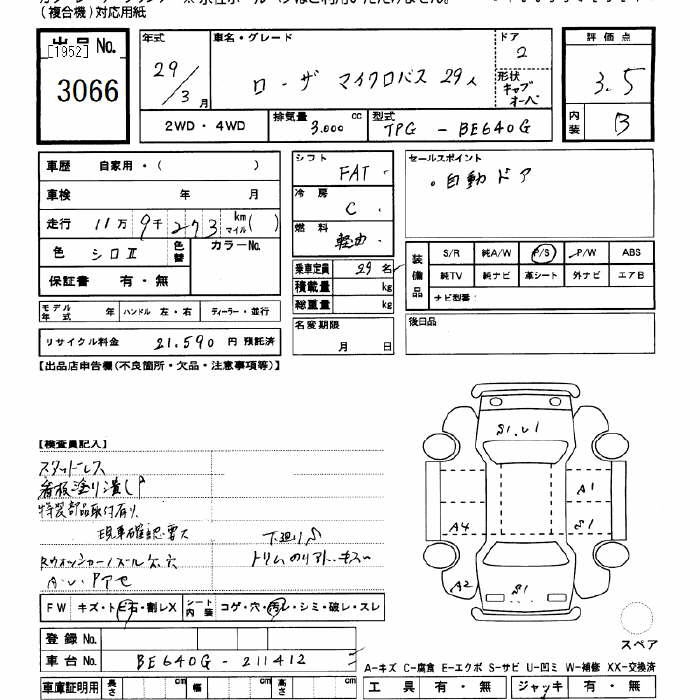 (複合機)対応用紙
出品 No.
[1952]
3066
年式
29/3月
車名・グレード
ローザ マイクロバス 29人
ドア
2
形状
キャブオーバ
2WD・4WD
排気量 3.000 cc
型式 TPG - BE640G
評価点
3.5
内装
B
車歴 自家用・( )
車検 年 月
走行 11万9千273 km マイル( )
色 シロII
色替
カラーNo.
保証書 有・無
モデル年式 年
ハンドル 左・右
ディーラー・並行
リサイクル料金 21.590 円 預託済
シフト
FAT
冷房
C
燃料
軽油
乗車定員 29名
積載量 kg
総重量 kg
名変期限
月 日
セールスポイント
。自動ドア
装備品
S/R 純A/W P/S P/W ABS
純TV 純ナビ 革シート 外ナビ エアB
ナビ型番:
後日品
【出品店申告欄(不良箇所・欠品・注意事項等)】
【検査員記入】
スタッドレス
看板塗り潰し P
特装部品取付有り
現車確認要ス
下廻りS
A.U.Pアセ
S1.U1
A1
A4
S1
A2
S1
スペア
FW キズ・トビ石・割レX
シート内装 コゲ・穴・汚レ・シミ・破レ・スレ
登録 No.
車台 No. BE640G - 211412
車庫証明用 長さ cm 幅 cm 高さ cm
A-キズ C-腐食 E-エクボ S-サビ U-凹ミ W-補修 XX-交換済
工具 有・無 ジャッキ 有・無